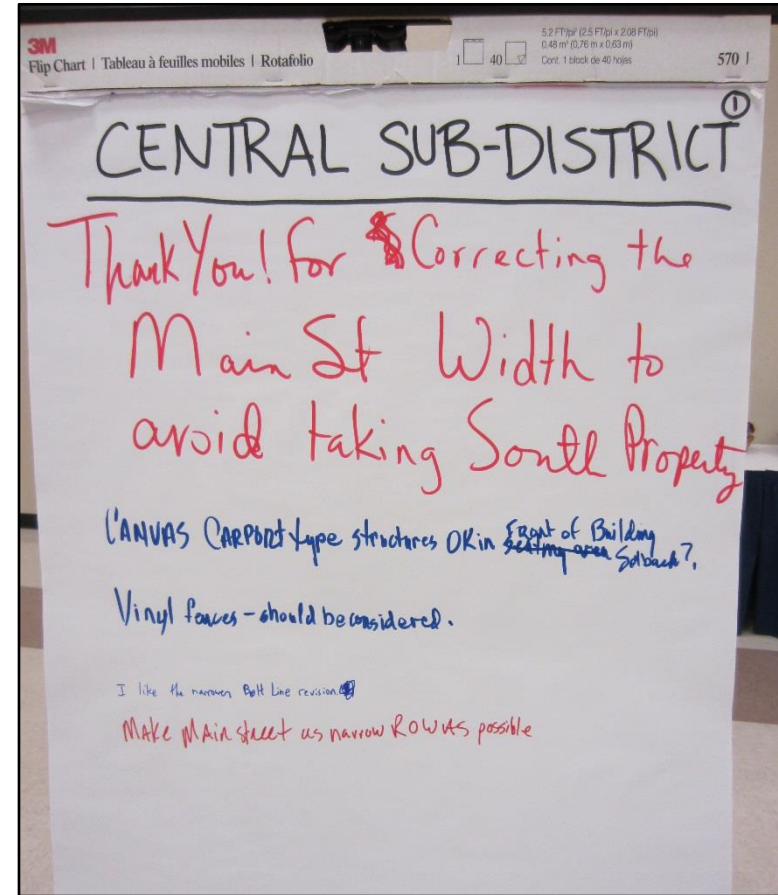 3M
Flip Chart | Tableau à feuilles mobiles | Rotafolio
1 40
5.2 FT²/pi² (2.5 FT/pi x 2.08 FT/pi)
0,48 m² (0,76 m x 0,63 m)
Cont. 1 block de 40 hojas
570
1
CENTRAL SUB-DISTRICT
Thank You! for Correcting the
Main St Width to
avoid taking South Property
CANVAS CARPORT type structures OK in Front of Building
seating area Setback?
Vinyl fences - should be considered.
I like the narrower Belt Line revision
MAKe MAin street as narrow ROW AS possible